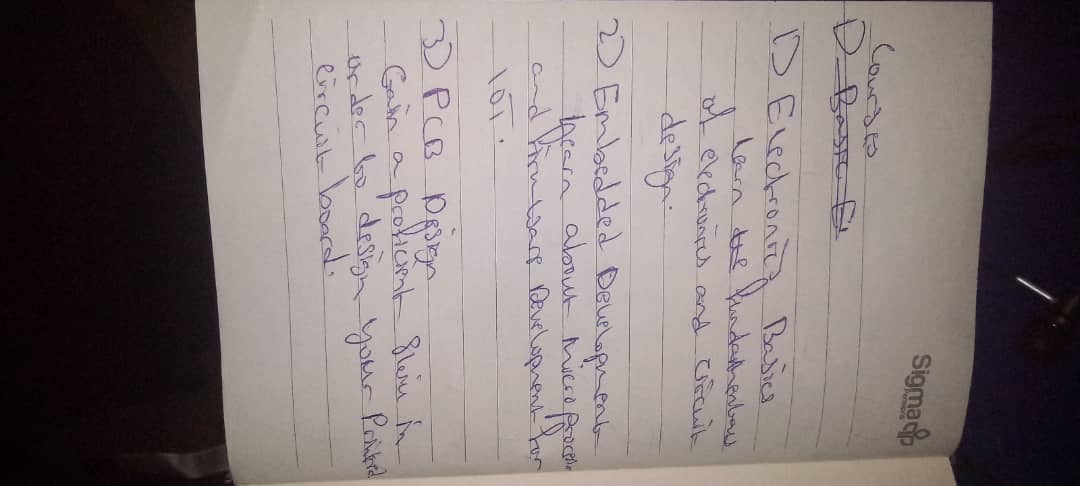 Sigma
Courses
1) Basic El
1) Electronics Basics
learn the fundamentals
of electronics and circuit
design.
2) Embedded Development
learn about microproces
and firmware Development for
IOT.
3) PCB Design
Gain a proficient skill in
order to design your Printed
circuit board.